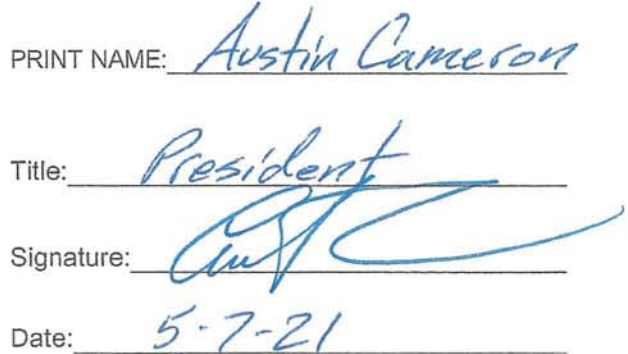 PRINT NAME: Austin Cameron
Title: President
Signature:
Date: 5-7-21